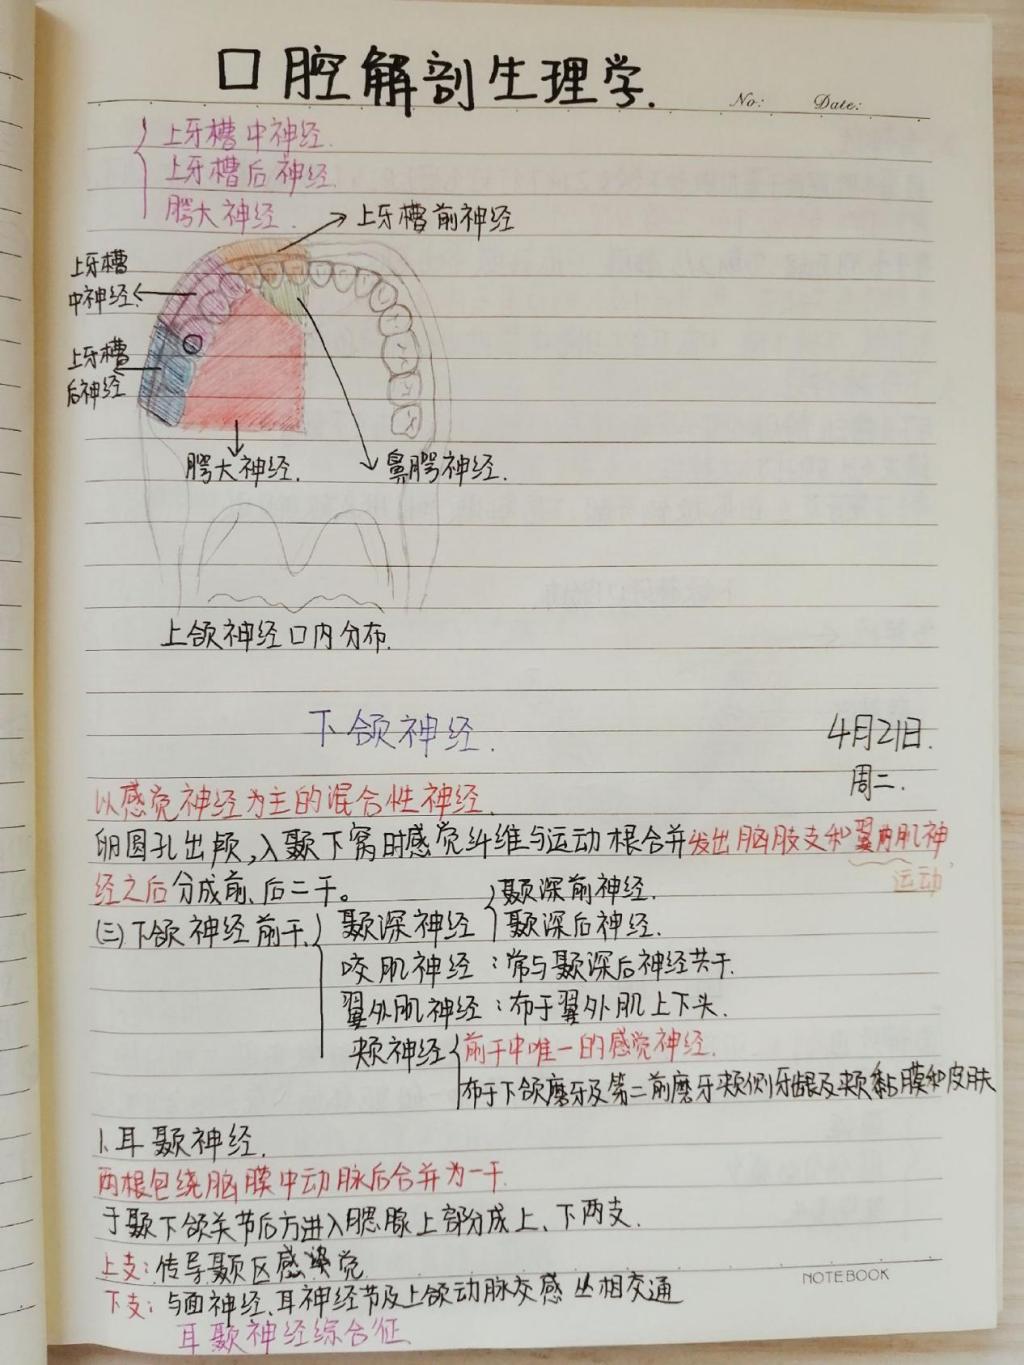 口腔解剖生理学.
No: Date:
上牙槽中神经.
上牙槽后神经.
腭大神经.
上牙槽前神经
上牙槽
中神经
上牙槽
后神经
腭大神经.
鼻腭神经.
上颌神经口内分布.
下颌神经.
4月21日.
周二.
以感觉神经为主的混合性神经.
卵圆孔出颅,入颞下窝时感觉纤维与运动根合并发出脑肢支和翼内肌神
经之后分成前、后二干。
运动
颞深前神经.
(三)下颌神经前干.
颞深神经
颞深后神经.
咬肌神经:常与颞深后神经共干.
翼外肌神经:布于翼外肌上下头.
颊神经
前干中唯一的感觉神经.
布于下颌磨牙及第二前磨牙颊侧牙龈及颊黏膜和皮肤
1.耳颞神经.
两根包绕脑膜中动脉后合并为一干.
于颞下颌关节后方进入腮腺上部分成上、下两支.
上支:传导颞区感觉
NOTEBOOK
下支:与面神经、耳神经节及上颌动脉交感丛相交通
耳颞神经综合征.